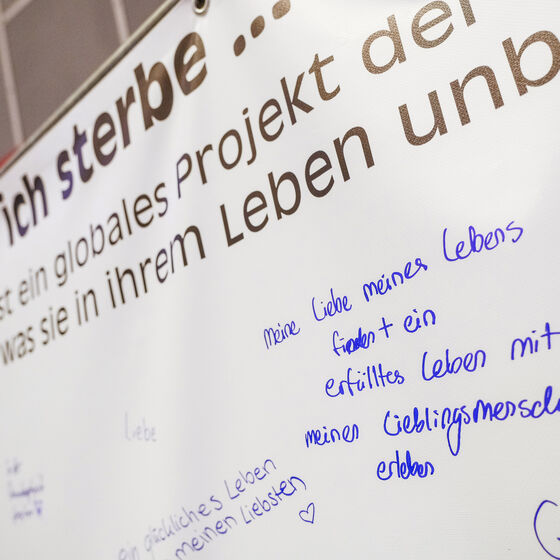 ich sterbe ...
st ein globales Projekt der
was sie in ihrem Leben unb
meine Liebe meines Lebens
finden + ein
erfülltes Leben mit
meinen Lieblingsmensch
erleben
Liebe
ein glückliches Leben
meinen Liebsten ♡